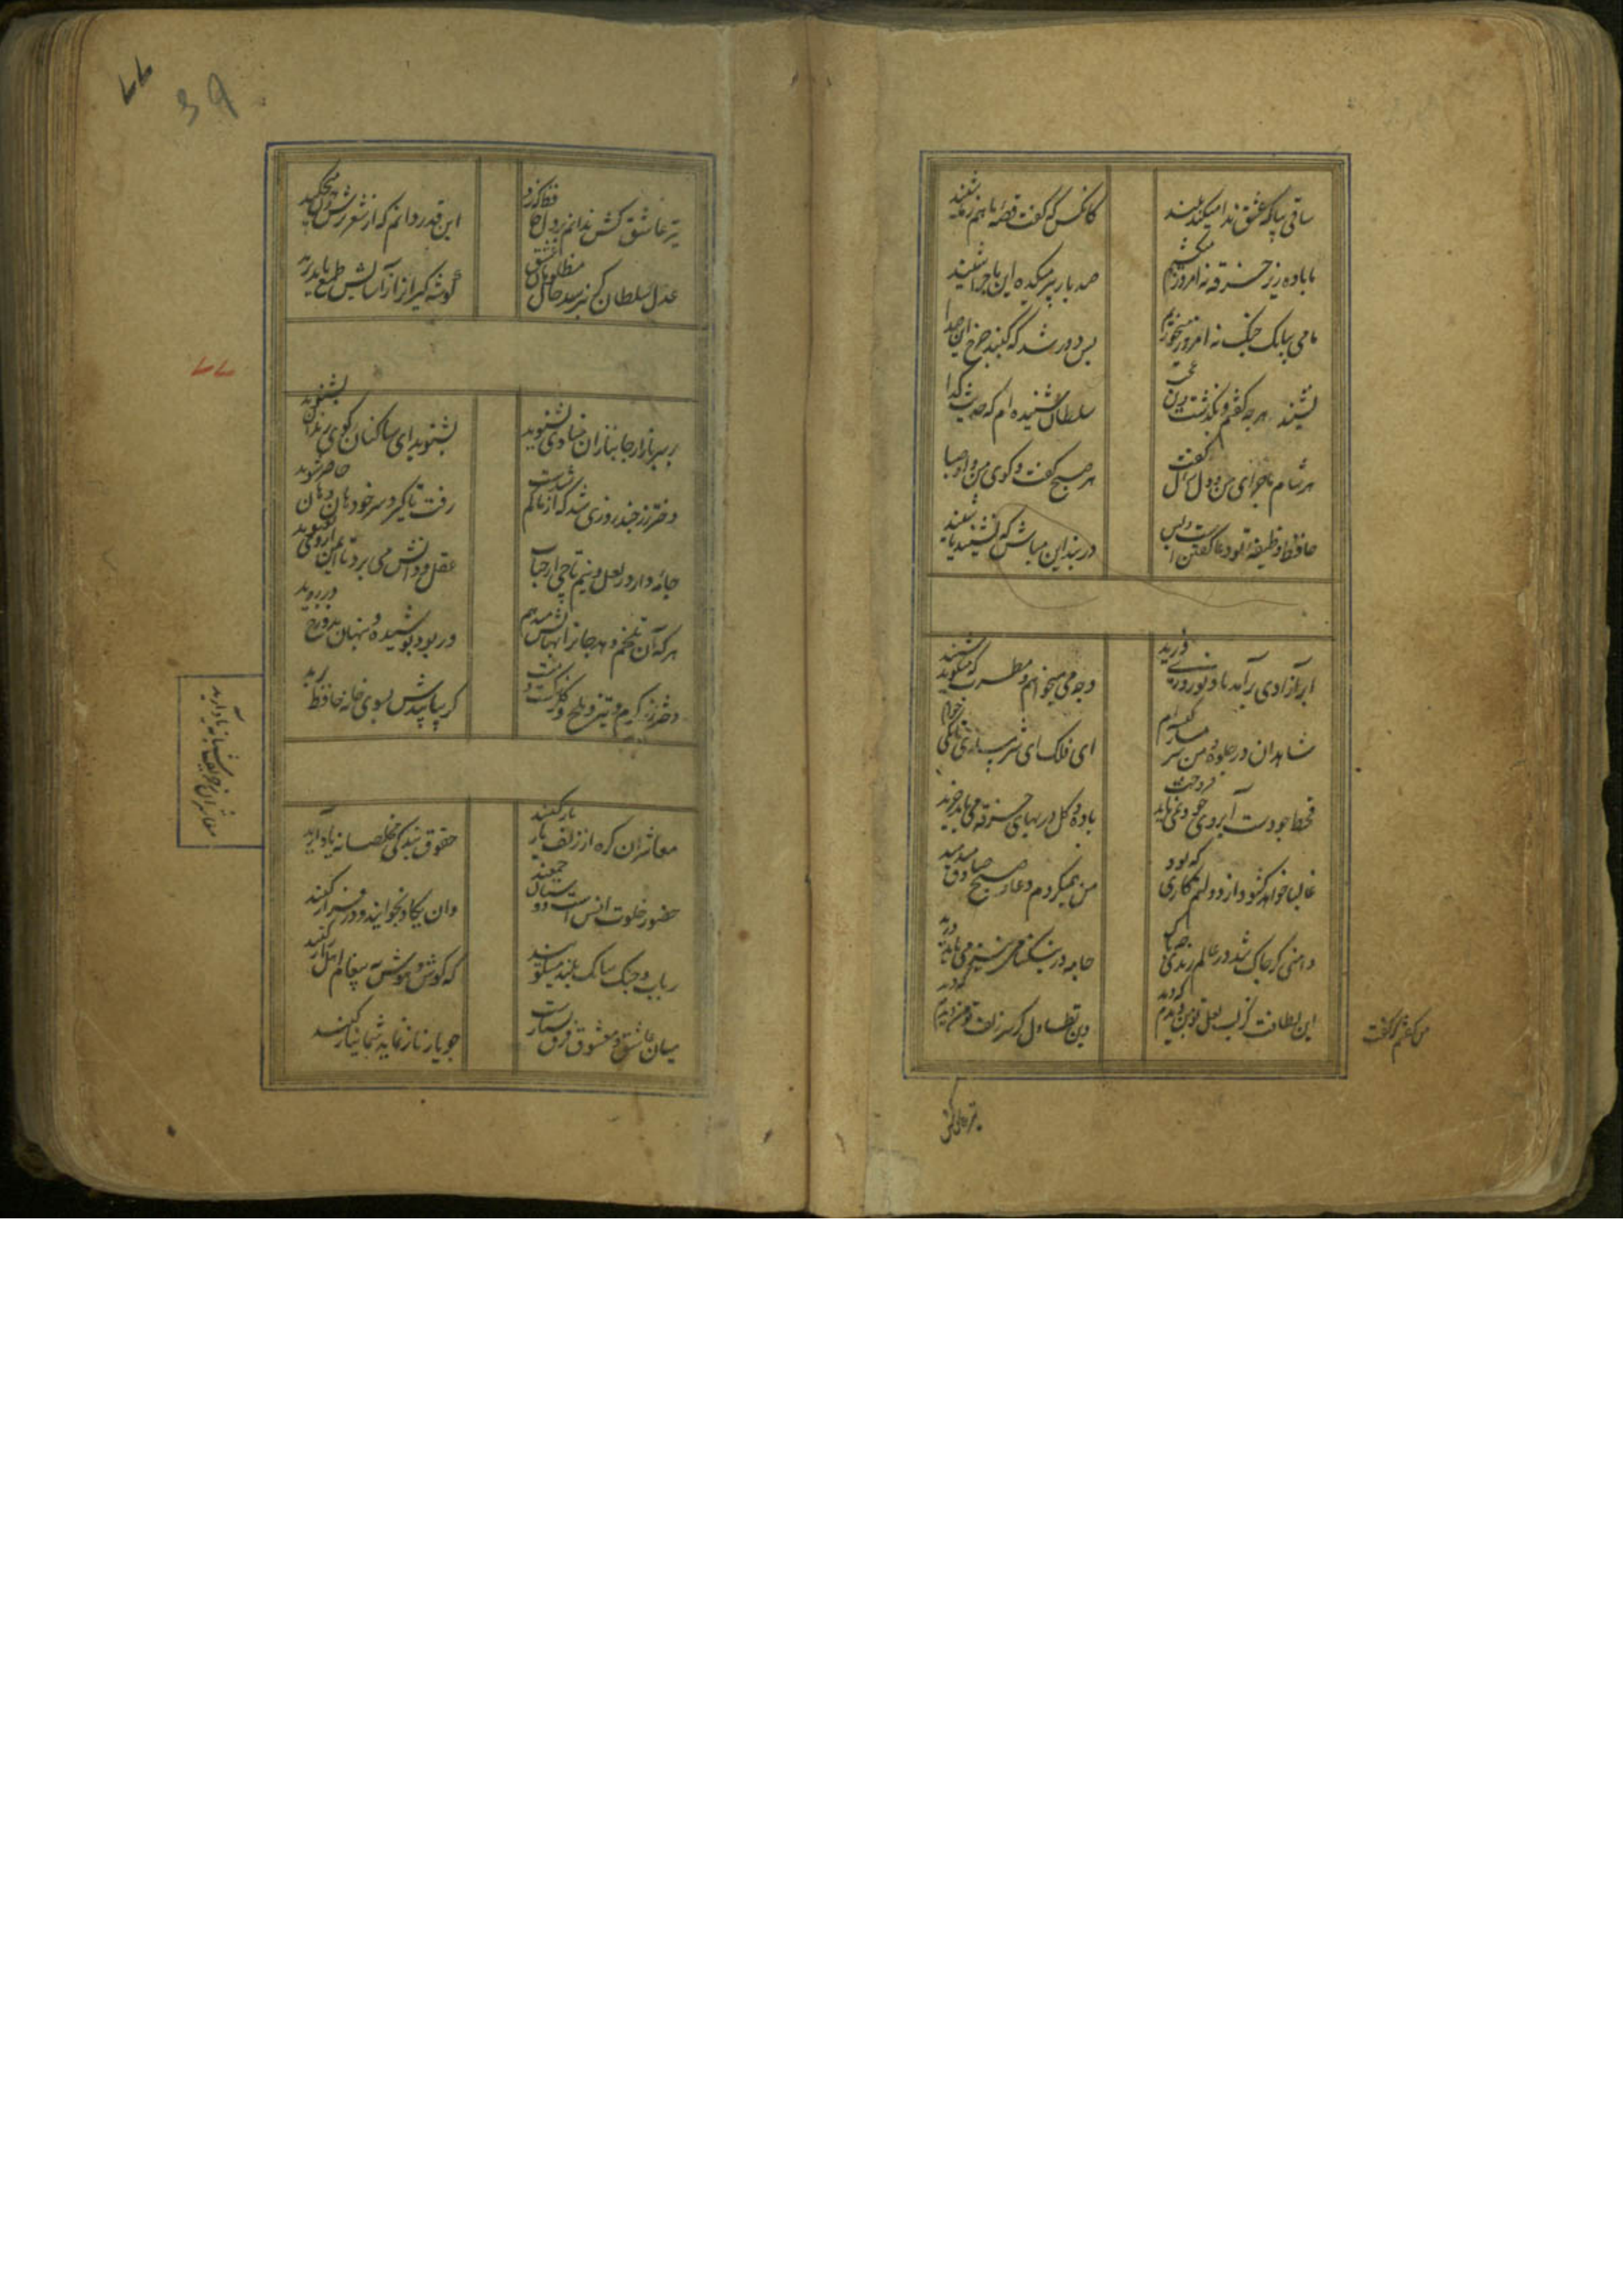 ساقی بیا که عشق ندا میکند بلند
کانکس که گفت قصهٔ ما هم ز ما شنید
ما باده زیر خرقه نه امروز میکشیم
صد بار پیر میکده این ماجرا شنید
ما می ببانک چنک نه امروز میخوریم
بس دور شد که کنبد چرخ این صدا شنید
سلطان شنیده ام که حدیث کدا
هر شام ماجرای من و دل شمال گفت
هر صبح گفت و کوی من و او صبا
حافظ وظیفهٔ تو دعا گفتن است و بس
در بند این مباش که نشنید یا شنید
ابر آزادی برآمد باد نوروزی وزید
وجه می میخواهم و مطرب که میگوید رسید
شاهدان در جلوه و من شرمسار کیسه ام
ای فلک این شرمساری تا بکی
قحط جودست آبروی خود نمی باید فروخت
باده و کل از بهای خرقه می باید خرید
غالبا خواهد کشود از دولتم کاری که دوش
من همیکردم دعا و صبح صادق میدمید
دامنی کر چاک شد در عالم رندی چه باک
جامه در نیکنامی نیز می باید درید
این لطافت کز لب لعل تو من دیدم که دید
وین تطاول کز سر زلف تو من دیدم که دید
من گفتم که گفت
تیر عاشق کش
تیر عاشق کش ندانم بر دل حافظ که زد
این قدر دانم که از شعر ترش خون میچکید
عدل سلطان کر نپرسد حال مظلومان عشق
گوشه گیران را ز آسایش طمع باید برید
۷۷
بر سر بازار جانبازان منادی بشنوید
بشنوید ای ساکنان کوی رندان بشنوید
دختر رز چند روزی شد که از ما کم شدست
رفت تا کیرد سر خود هان و هان حاضر شوید
جامهٔ دارد ز لعل و نیم تاجی از حباب
عقل و دانش می برد تا ایمن از وی نغنوید
هر که آن تلخم دهد جان را بهایش میدهم
ور بود پوشیده و پنهان بدوزخ در روید
کر بیابیدش بسوی خانه حافظ برید
معاشران کره از زلف یار باز کنید
حقوق بندگی مخلصانه یاد آرید
حضور خلوت انس است و دوستان جمعند
وان یکاد بخوانید و در فراز کنید
رباب و چنک ببانک بلند میگویند
که گوش و هوش به پیغام اهل راز کنید
میان عاشق و معشوق فرق بسیارست
چو یار ناز نماید شما نیاز کنید
معاشران ز حریف شبانه یاد آرید